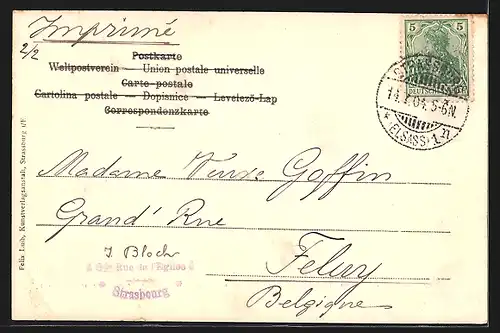 Imprimé
2/2
Postkarte
Weltpostverein — Union postale universelle
Carte-postale
Cartolina postale — Dopisnice — Levelező-Lap
Correspondenzkarte
5 5
STRASSBURG
5-6N.
* (ELSASS) 1
Madame Veuve Goffin
Grand' Rue
J Bloch
Rue de l'Eglise
Strasbourg
Feluy
Belgique
Felix Luib, Kunstverlagsanstalt, Strassburg i/E